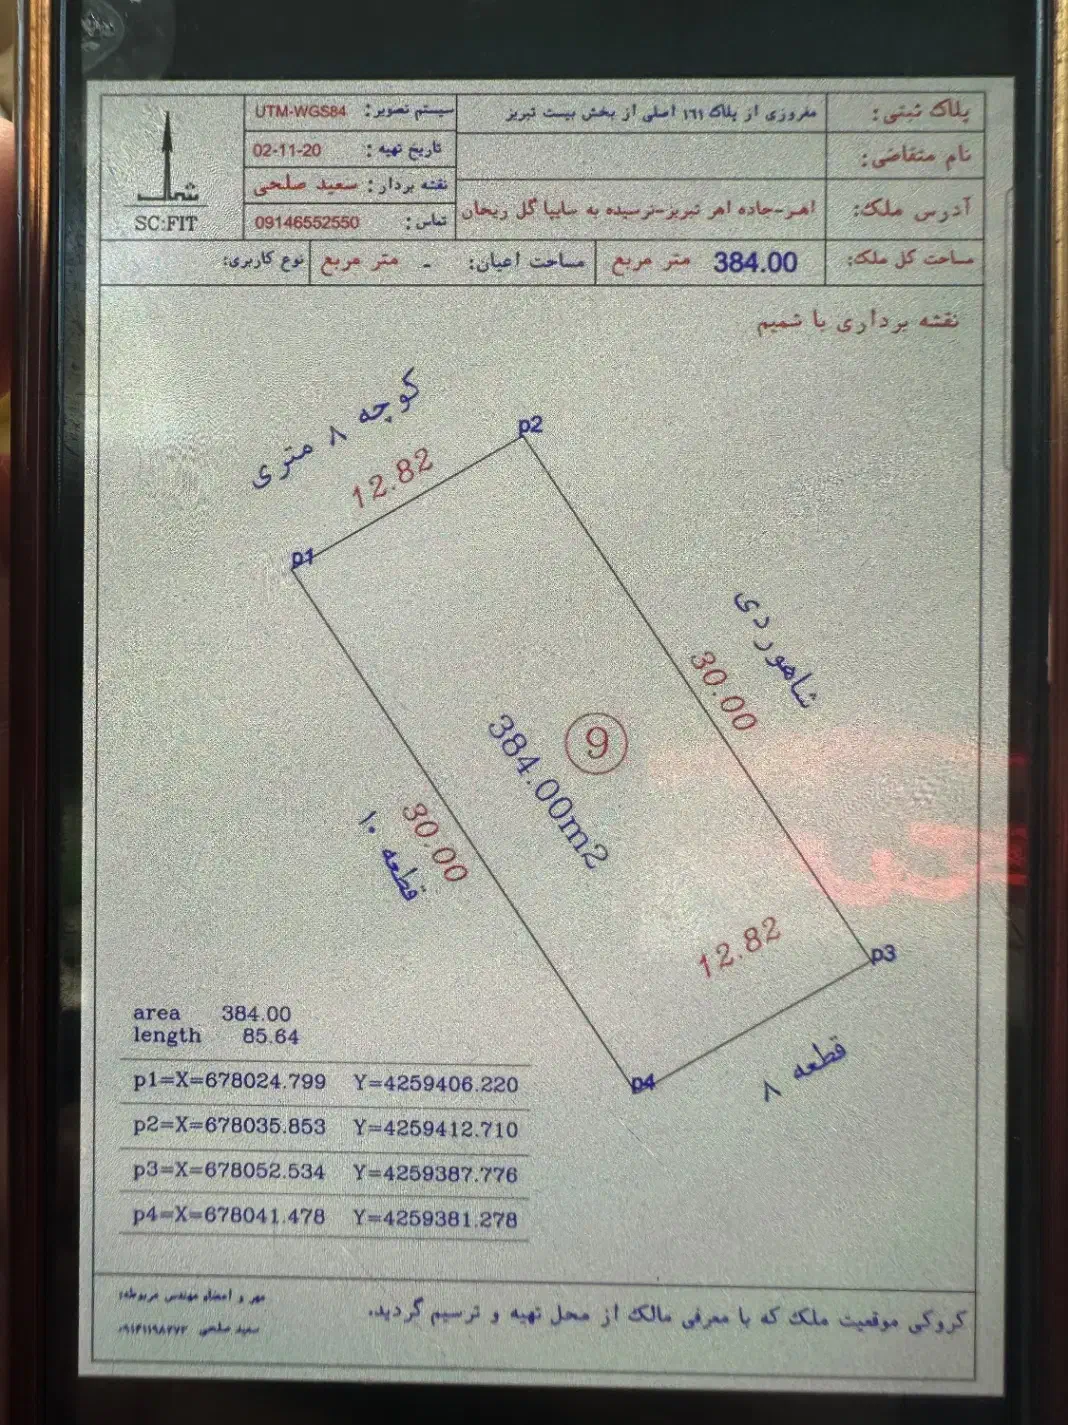 پلاک ثبتی: مفروزی از پلاک ۱۶۱ اصلی از بخش بیست تبریز
نام متقاضی:
آدرس ملک: اهر-جاده اهر تبریز-نرسیده به سایپا گل ریحان
سیستم تصویر: UTM-WGS84
تاریخ تهیه : 02-11-20
نقشه بردار : سعید صلحی
تماس : 09146552550
SC:FIT
مساحت کل ملک: 384.00 متر مربع
مساحت اعیان: - متر مربع
نوع کاربری:
نقشه برداری با شمیم
کوچه ۸ متری
12.82
p2
p1
شاهوردی
30.00
9
384.00m2
30.00
قطعه ۱۰
12.82
p3
p4
قطعه ۸
area 384.00
length 85.64
p1=X=678024.799 Y=4259406.220
p2=X=678035.853 Y=4259412.710
p3=X=678052.534 Y=4259387.776
p4=X=678041.478 Y=4259381.278
کروکی موقعیت ملک که با معرفی مالک از محل تهیه و ترسیم گردید.
مهر و امضاء مهندس مربوطه:
سعید صلحی